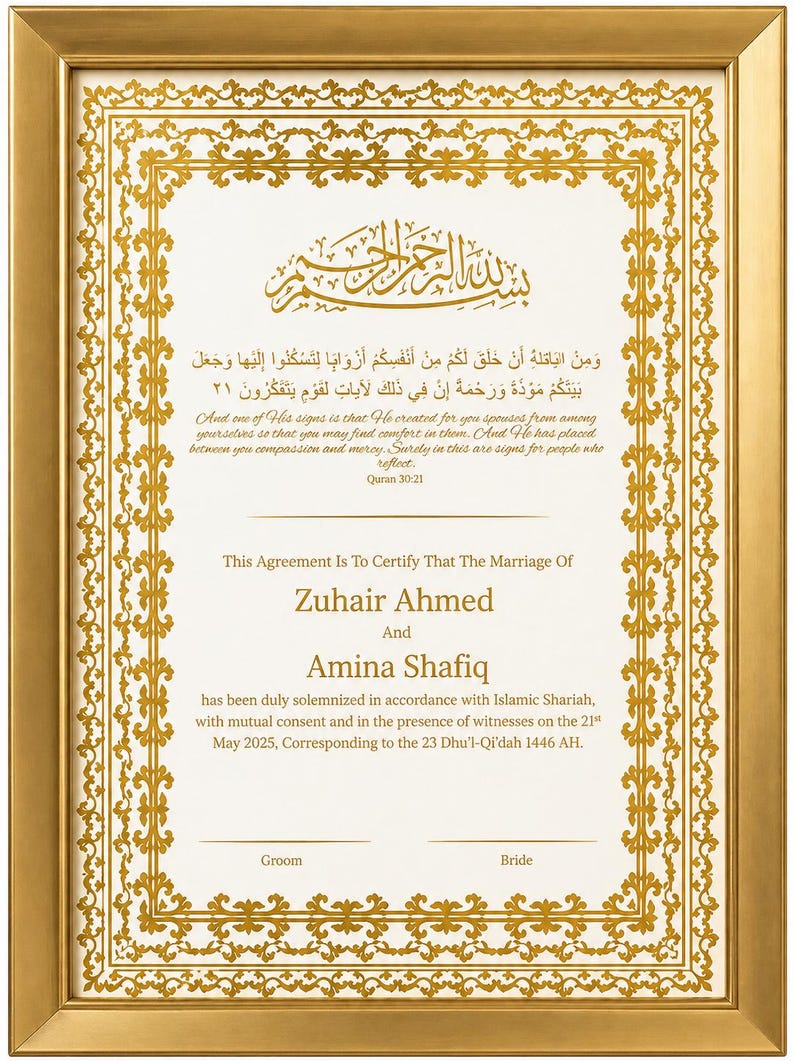 بسم الله الرحمن الرحيم
وَمِنْ اليَاتلهِ أَنْ خَلَقَ لَكُمْ مِنْ أَنْفُسِكُمْ أَزْوَابًا لِتَسْكُنُوا إِلَيْها وَجَعَلَ
بَيْتَكُمْ مَوْدَةَ وَرَحْمَةً إِنَّ فِي ذَلِكَ لَآيَاتٍ لِقَوْمٍ يَتَفَكَّرُونَ ٢١
And one of His signs is that He created for you spouses from among
yourselves so that you may find comfort in them. And He has placed
between you compassion and mercy. Surely in this are signs for people who
reflect.
Quran 30:21
This Agreement Is To Certify That The Marriage Of
Zuhair Ahmed
And
Amina Shafiq
has been duly solemnized in accordance with Islamic Shariah,
with mutual consent and in the presence of witnesses on the 21st
May 2025, Corresponding to the 23 Dhu'l-Qi'dah 1446 AH.
Groom Bride